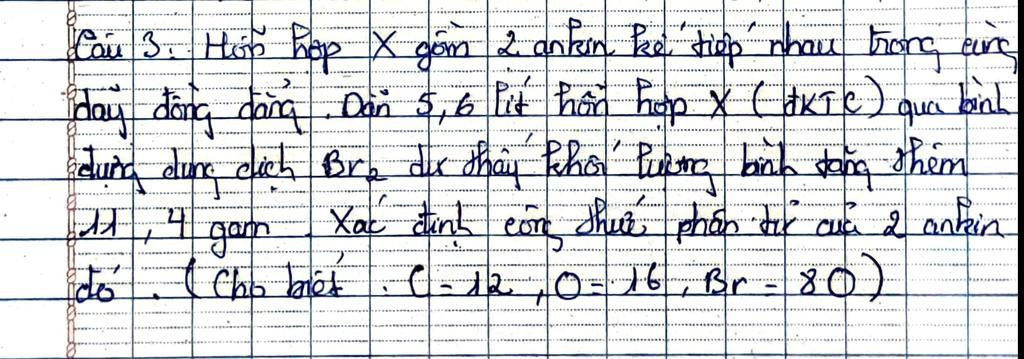 Câu 3: Hỗn hợp X gồm 2 ankin kế tiếp nhau trong cùng
dãy đồng đẳng. Dẫn 5,6 lít hỗn hợp X (đKTC) qua bình
đựng dung dịch Br₂ dư thấy khối lượng bình tăng thêm
11,4 gam. Xác định công thức phân tử của 2 ankin
đó. (Cho biết: C = 12, O = 16, Br = 80)